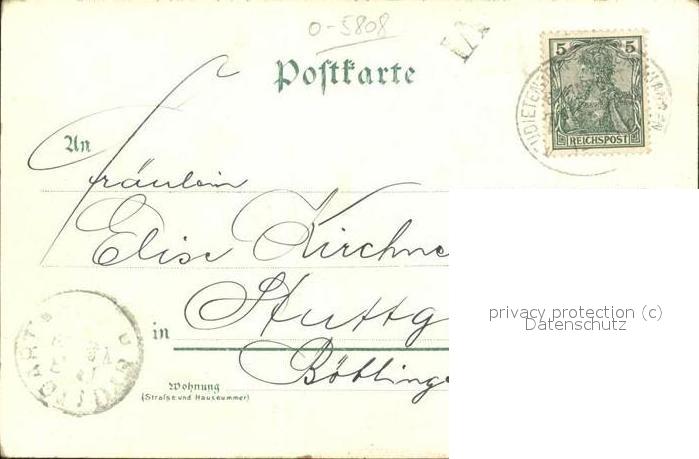 0-5808
Postkarte
5 5
REICHSPOST
An
Fräulein
Elise Kirchne
in Stuttg
Böblinge
Wohnung
(Straße und Hausnummer)
privacy protection (c)
Datenschutz